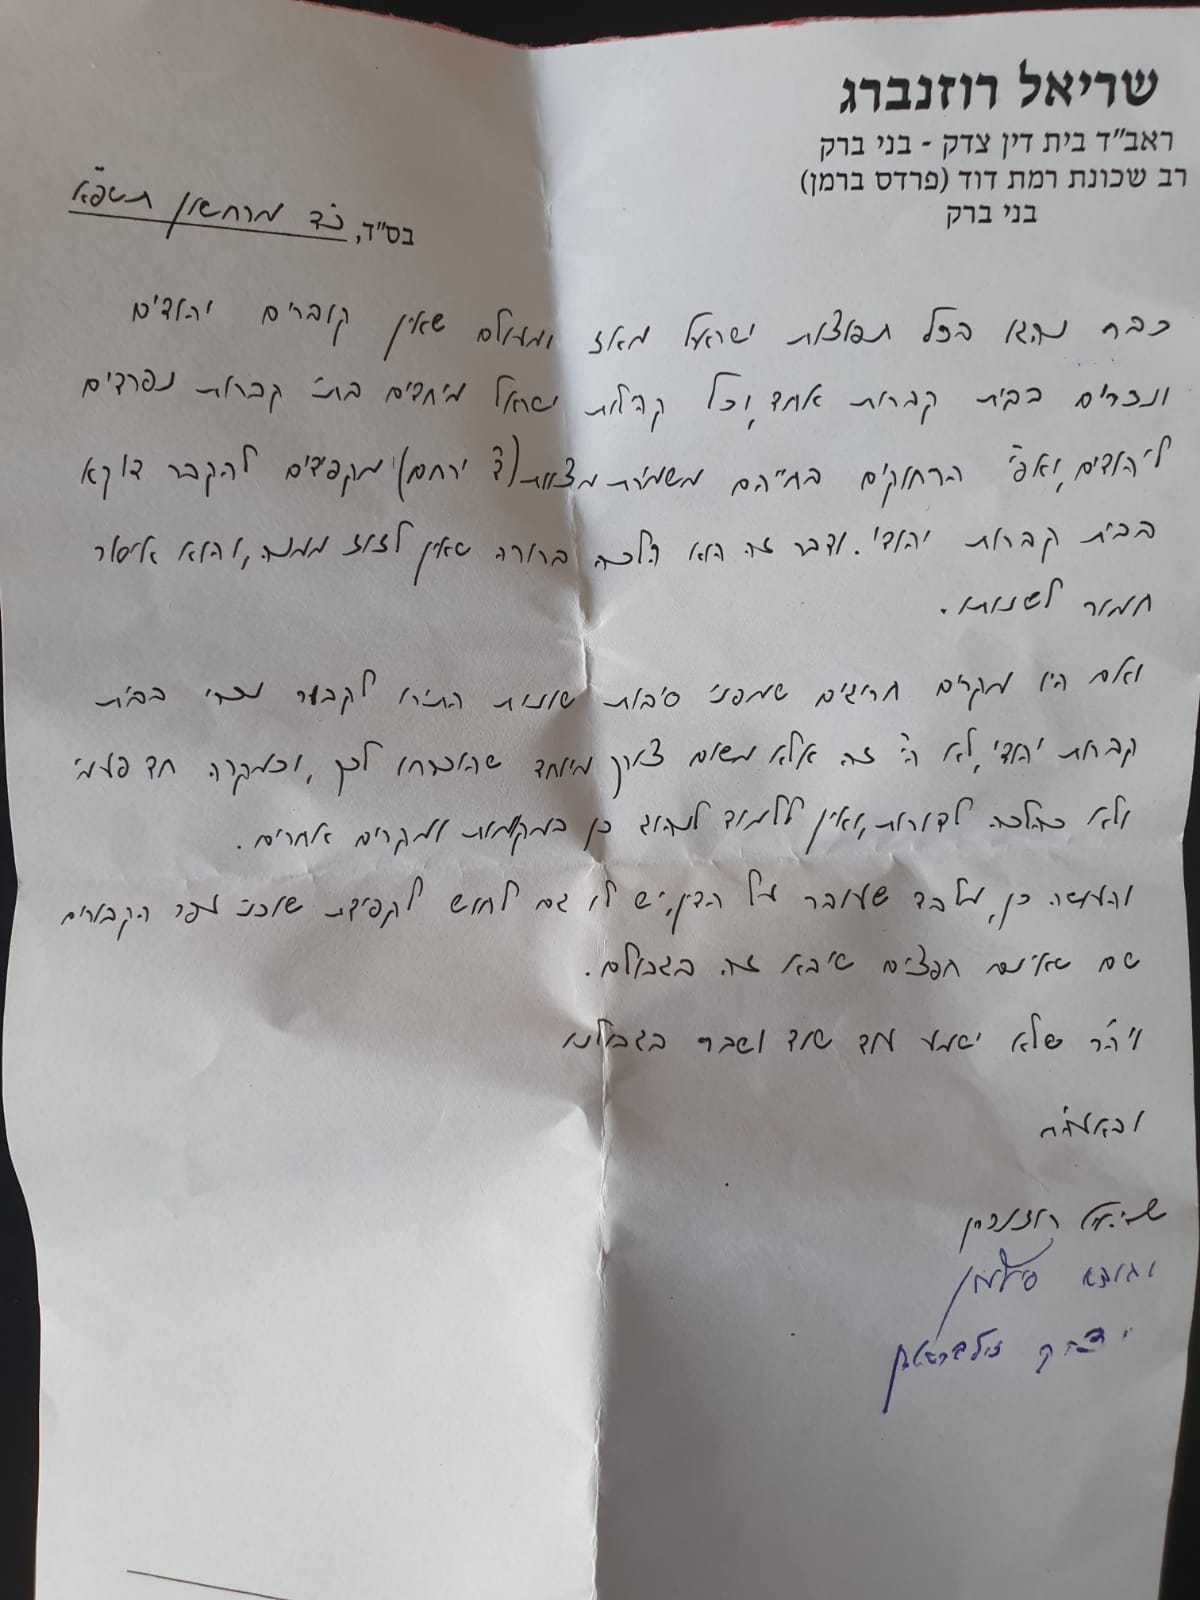 שריאל רוזנברג
ראב"ד בית דין צדק - בני ברק
רב שכונת רמת דוד (פרדס ברמן)
בני ברק
בס"ד, כ"ד מרחשון תשפ"א
כבר נהגו בכל תפוצות ישראל מאז ומעולם שאין קוברים יהודים
ונכרים בבית קברות אחד, וכל קהלות ישראל מיחדים בתי קברות נפרדים
ליהודים, ואפי' הרחוקים בחייהם משמירת מצוות (ד' ירחם) מקפידים להקבר דוקא
בבית קברות יהודי. ודבר זה הוא הלכה ברורה שאין לזוז ממנה, והוא איסור
חמור לשנותו.
ואם היו מקרים חריגים שמפני סיבות שונות התירו לקבור נכרי בבית
קברות יהודי, לא הי' זה אלא משום צורך מיוחד שהוכרחו לכך, וכמקרה חד פעמי
ולא כהלכה לדורות, ואין ללמוד לנהוג כן במקומות ומקרים אחרים.
והעושה כן, מלבד שעובר על הדין, יש לו גם לחוש לקפידת שוכני עפר הקבורים
שם שאינם חפצים שיבא זה בגבולם.
ויה"ר שלא ישמע עוד שוד ושבר בגבולנו
ובאעה"ח
שריאל רוזנברג
יהודא סילמן
יצחק זילברשטיין